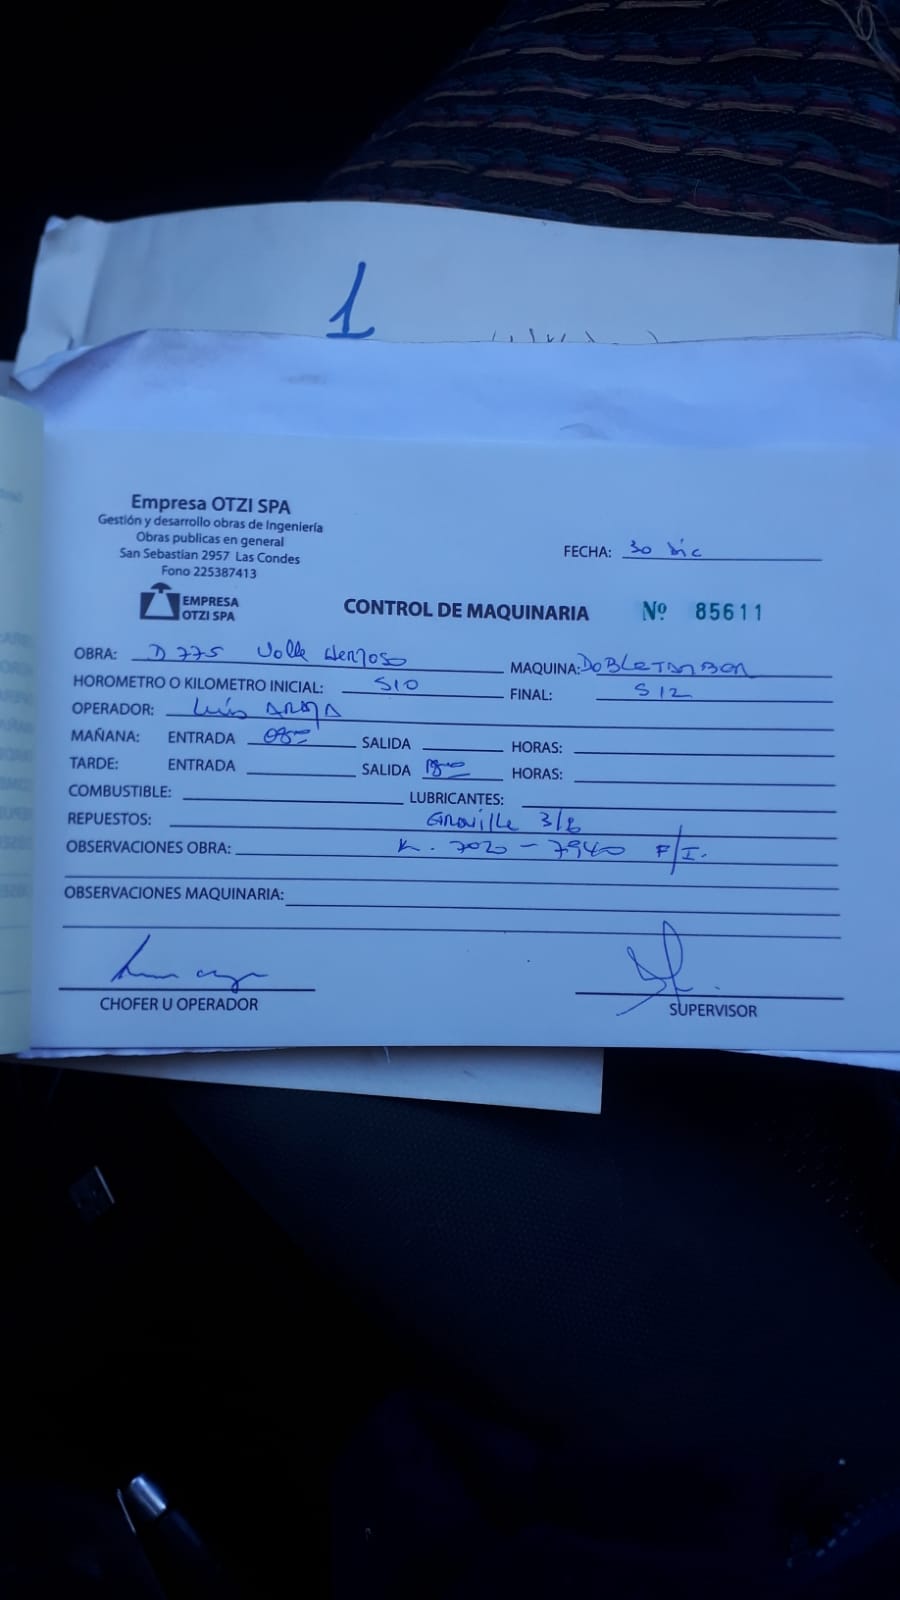 1
Empresa OTZI SPA
Gestión y desarrollo obras de Ingeniería
Obras publicas en general
San Sebastian 2957 Las Condes
Fono 225387413
EMPRESA
OTZI SPA
FECHA: 30 Dic
CONTROL DE MAQUINARIA Nº 85611
OBRA: D 775 Valle Hermoso MAQUINA: DOBLETAMBOR
HOROMETRO O KILOMETRO INICIAL: 510 FINAL: 512
OPERADOR: Luis ARAYA
MAÑANA: ENTRADA 08⁰⁰ SALIDA HORAS:
TARDE: ENTRADA SALIDA 18⁰⁰ HORAS:
COMBUSTIBLE: LUBRICANTES:
REPUESTOS: Gravilla 3/8
OBSERVACIONES OBRA: K. 7020 - 7940 F/I.
OBSERVACIONES MAQUINARIA:
CHOFER U OPERADOR
SUPERVISOR